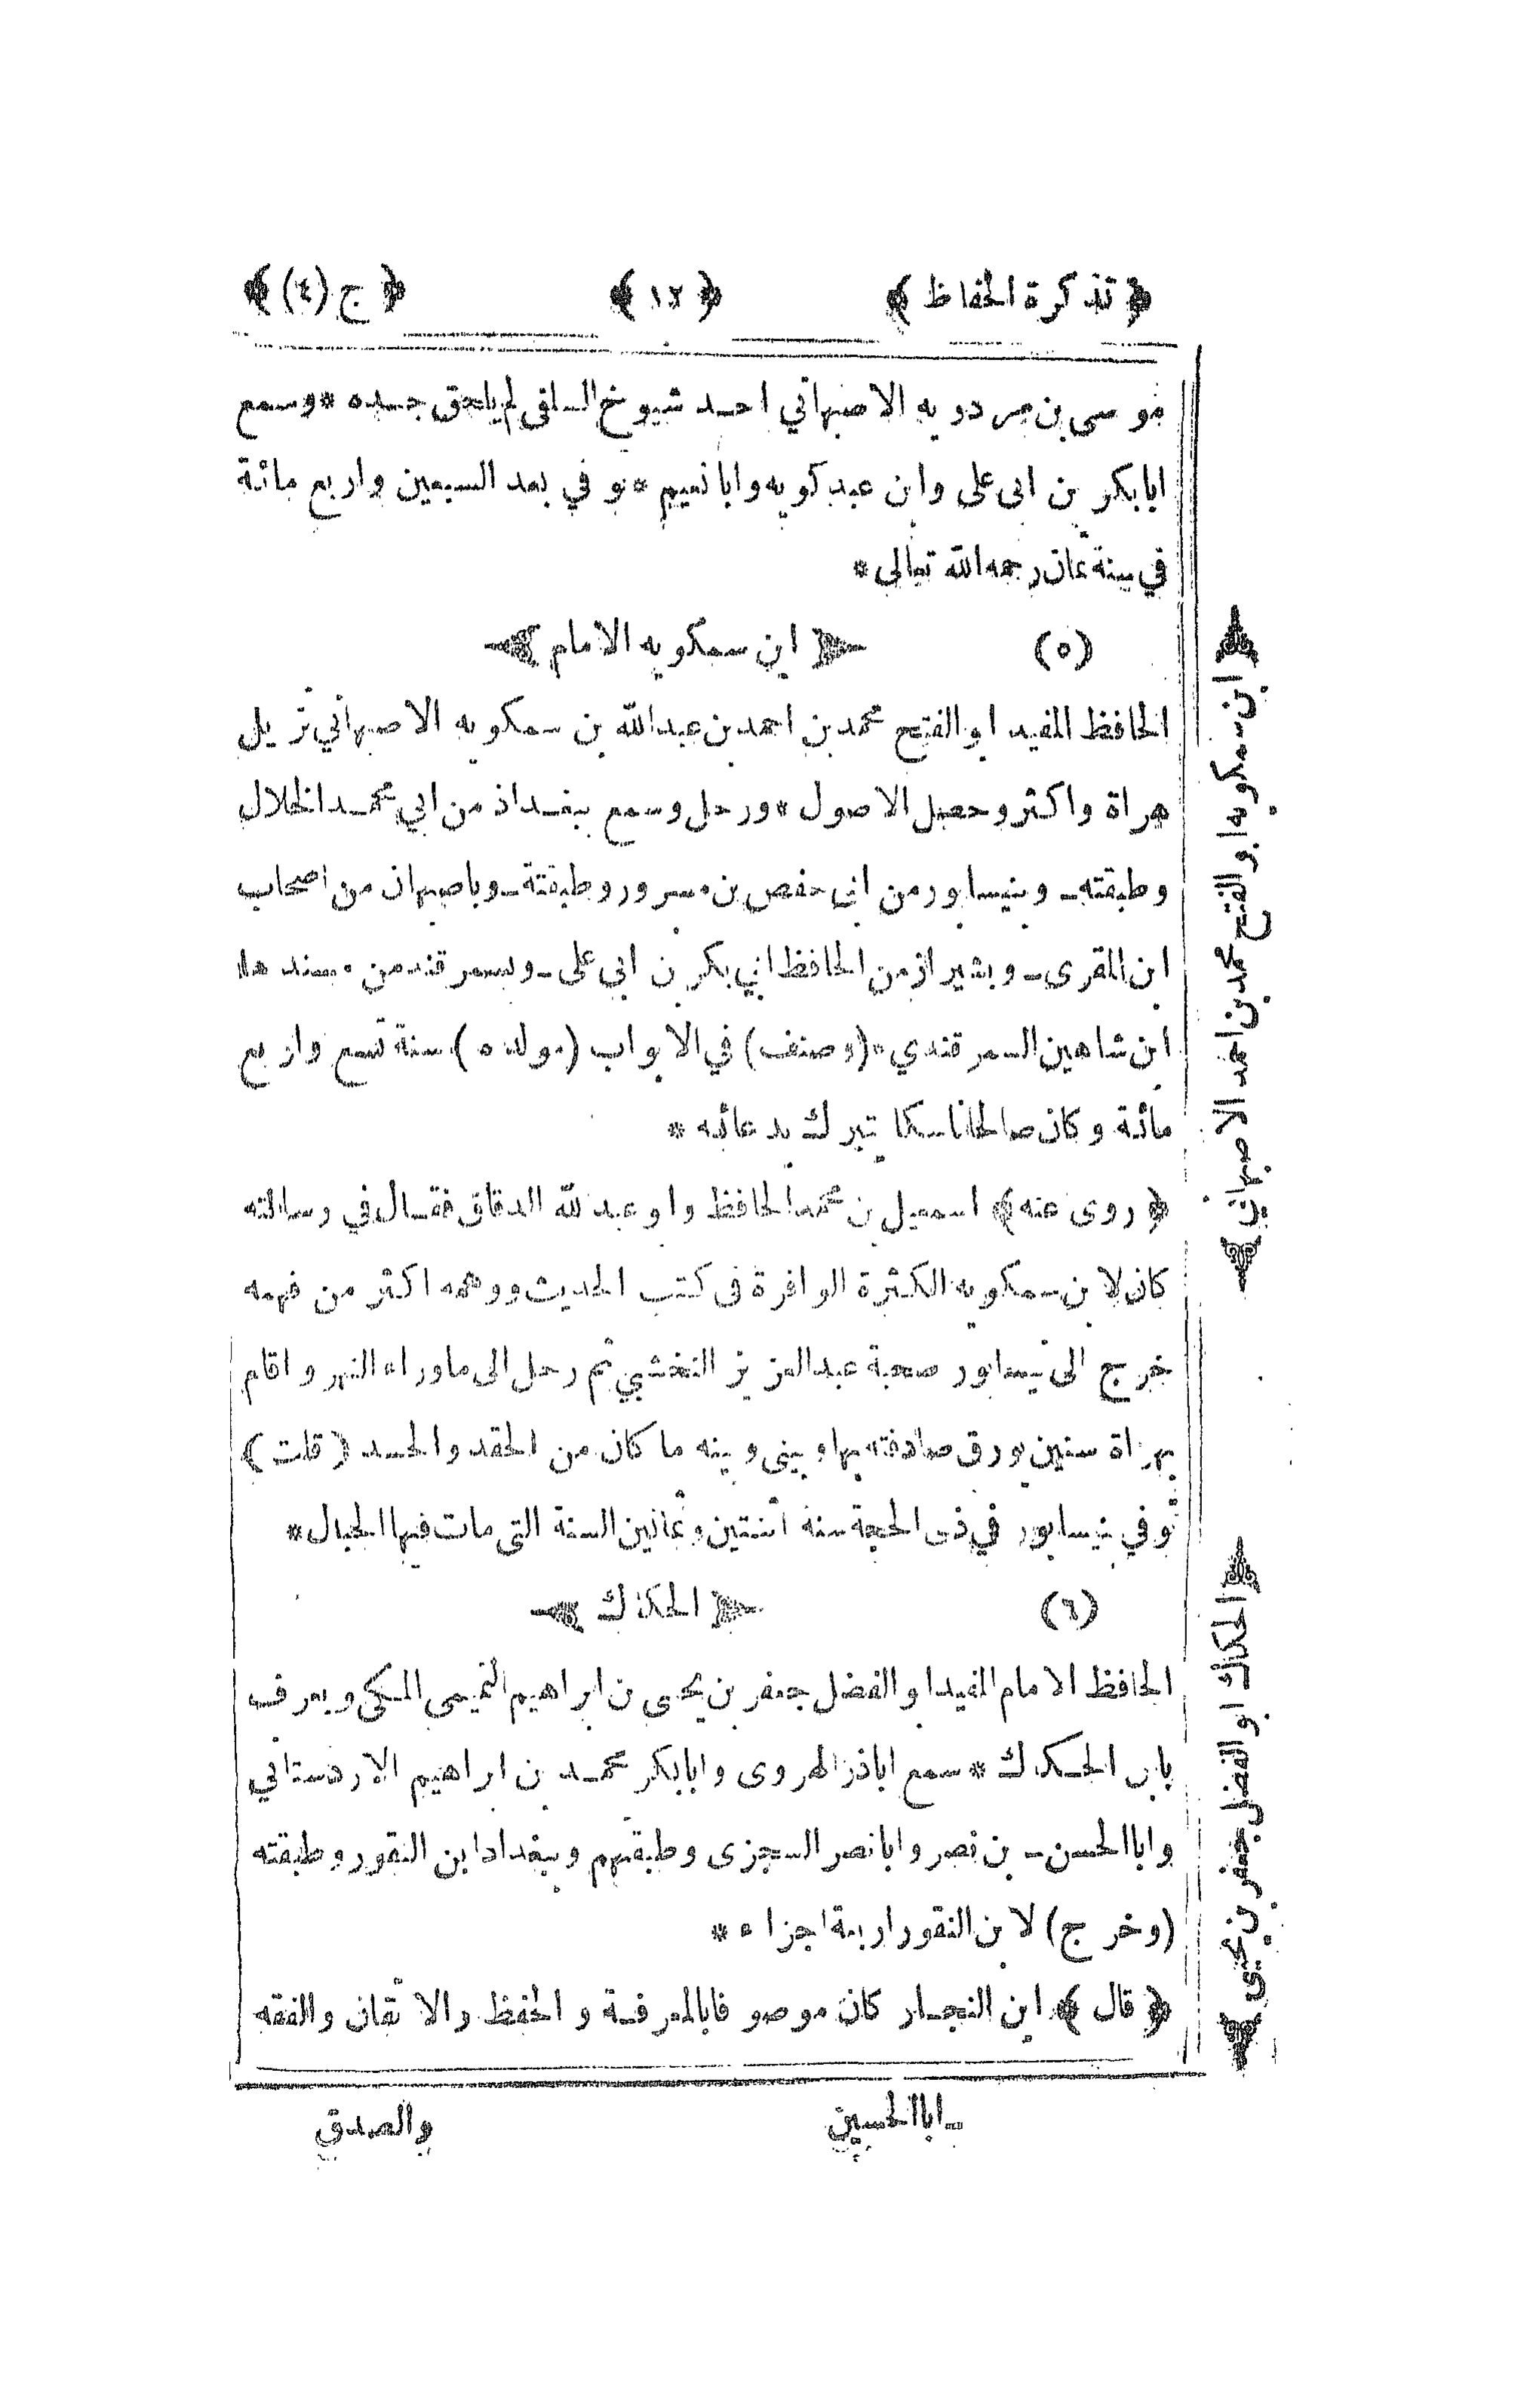 ﴿ تذكرة الحفاظ ﴾ ﴿ ١٢ ﴾ ﴿ ج (٤) ﴾
موسى بن مردويه الاصبهاني احد شيوخ السلفى لم يلحق جده * وسمع
ابابكر بن ابى على وابن عبدكويه وابا نعيم * توفي بعد السبعين واربع مائة
في سنة ثمان رحمه الله تعالى *
(٥) ابن سمكويه الامام
الحافظ المفيد ابو الفتح محمد بن احمد بن عبدالله بن سمكويه الاصبهاني نزيل
هراة واكثر وحصل الاصول * ورحل وسمع ببغداذ من ابي محمد الخلال
وطبقته ـ وبنيسابور من ابى حفص بن مسرور وطبقتة ـ وباصبهان من اصحاب
ابن المقرى ـ وبشيراز من الحافظ ابي بكر بن ابى على ـ وبسمرقند من مسندها
ابن شاهين السمرقندي * (وصنف) في الابواب (مولده) سنة تسع واربع
مائة وكان صالحا ناسكا يتبرك بدعائه *
﴿ روى عنه ﴾ اسمعيل بن محمد الحافظ وابو عبدالله الدقاق فقال في رسالته
كان لابن سمكويه الكثرة الوافرة فى كتب الحديث ووهمه اكثر من فهمه
خرج الى نيسابور صحبة عبدالعزيز النخشبي ثم رحل الى ماوراء النهر واقام
بهراة سنين يورق صادفته بها وبينى وبينه ما كان من الحقد والحسد (قلت)
توفي بنيسابور في ذى الحجة سنة اثنتين وثمانين السنة التى مات فيها الحبال *
(٦) الحكاك
الحافظ الامام المفيد ابو الفضل جعفر بن يحيى بن ابراهيم التميمى المكى ويعرف
بابن الحكاك * سمع اباذر الهروى وابابكر محمد بن ابراهيم الاردستاني
وابا الحسن ـ بن نصر وابا نصر السجزى وطبقتهم وببغداد ابن النقور وطبقته
(وخرج) لابن النقور اربعة اجزاء *
﴿ قال ﴾ ابن النجار كان موصوفا بالمعرفة والحفظ والاتقان والفقه
ـ ابا الحسين
والصدق
ابن سمكويه ابو الفتح محمد بن احمد الاصبهاني
الحكاك ابو الفضل جعفر بن يحيى